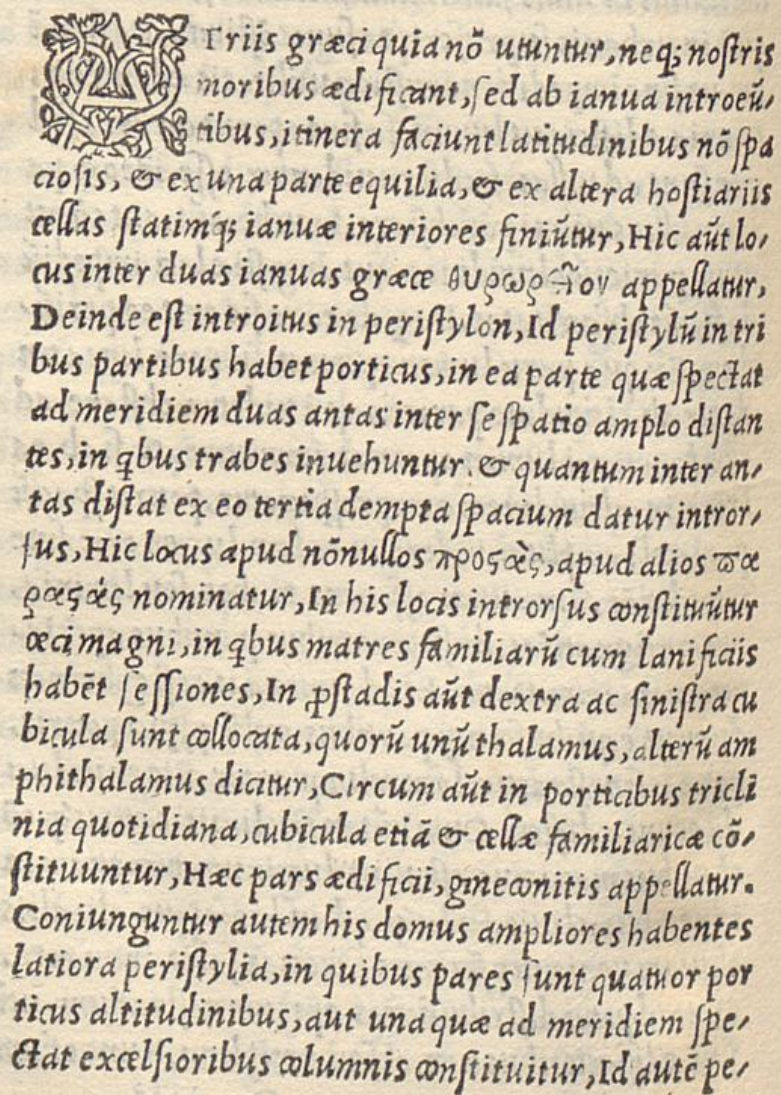 ATriis græci quia nõ utuntur, neq; nostris
moribus ædificant, sed ab ianua introeũ-
tibus, itinera faciunt latitudinibus nõ spa
ciosis, & ex una parte equilia, & ex altera hostiariis
cellas statimq́; ianuæ interiores finiũtur, Hic aũt lo-
cus inter duas ianuas græce θυρωρεῖον appellatur,
Deinde est introitus in peristylon, Id peristylũ in tri
bus partibus habet porticus, in ea parte quæ spectat
ad meridiem duas antas inter se spatio amplo distan
tes, in qbus trabes inuehuntur. & quantum inter an-
tas distat ex eo tertia dempta spacium datur intror-
sus, Hic locus apud nõnullos προςὰς, apud alios πα
ραςάς nominatur, In his locis introrsus constituũtur
œci magni, in qbus matres familiarũ cum lanificiis
habẽt sessiones, In ꝓstadis aũt dextra ac sinistra cu
bicula sunt collocata, quorũ unũ thalamus, alterũ am
phithalamus dicitur, Circum aũt in porticibus tricli
nia quotidiana, cubicula etiã & cellæ familiaricæ cõ-
stituuntur, Hæc pars ædificii, gineconitis appellatur.
Coniunguntur autem his domus ampliores habentes
latiora peristylia, in quibus pares sunt quatuor por
ticus altitudinibus, aut una quæ ad meridiem spe-
ctat excelsioribus columnis constituitur, Id autẽ pe-